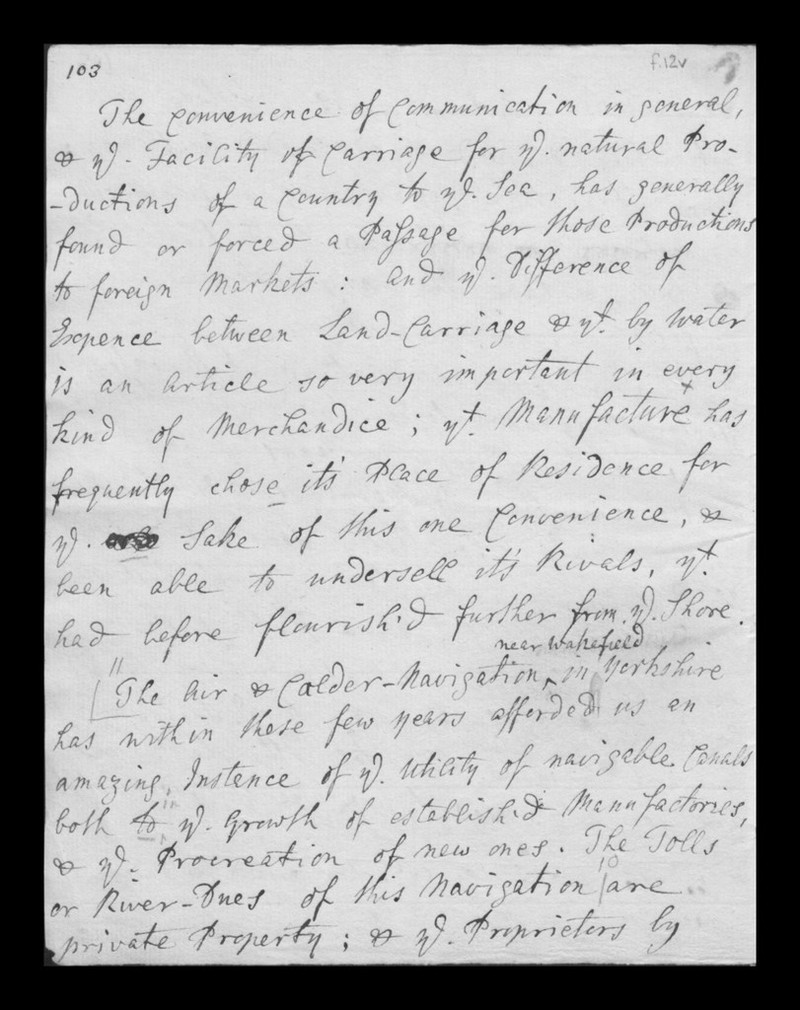 103
f.12v
The Convenience of Communication in general,
& ye. Facility of Carriage for ye. natural Pro-
-ductions of a Country to ye. Sea, has generally
found or forced a Passage for those Productions
to foreign Markets: and ye. Difference of
Expence between Land-Carriage & yt. by Water
is an Article so very important in every
kind of Merchandice; yt. Manufacture has
frequently chose it's Place of Residence for
ye. Sake of this one Convenience, &
been able to undersell it's Rivals, yt.
had before flourish'd further from ye. Shore.
near Wakefield
"The Air & Calder-Navigation ‸ in Yorkshire
has within these few years afforded us an
amazing Instance of ye. Utility of navigable Canals
both to ye. Growth of establish'd Manufactories,
& ye. Procreation of new ones. The Tolls
or River-Dues of this Navigation are
private Property; & ye. Proprietors by